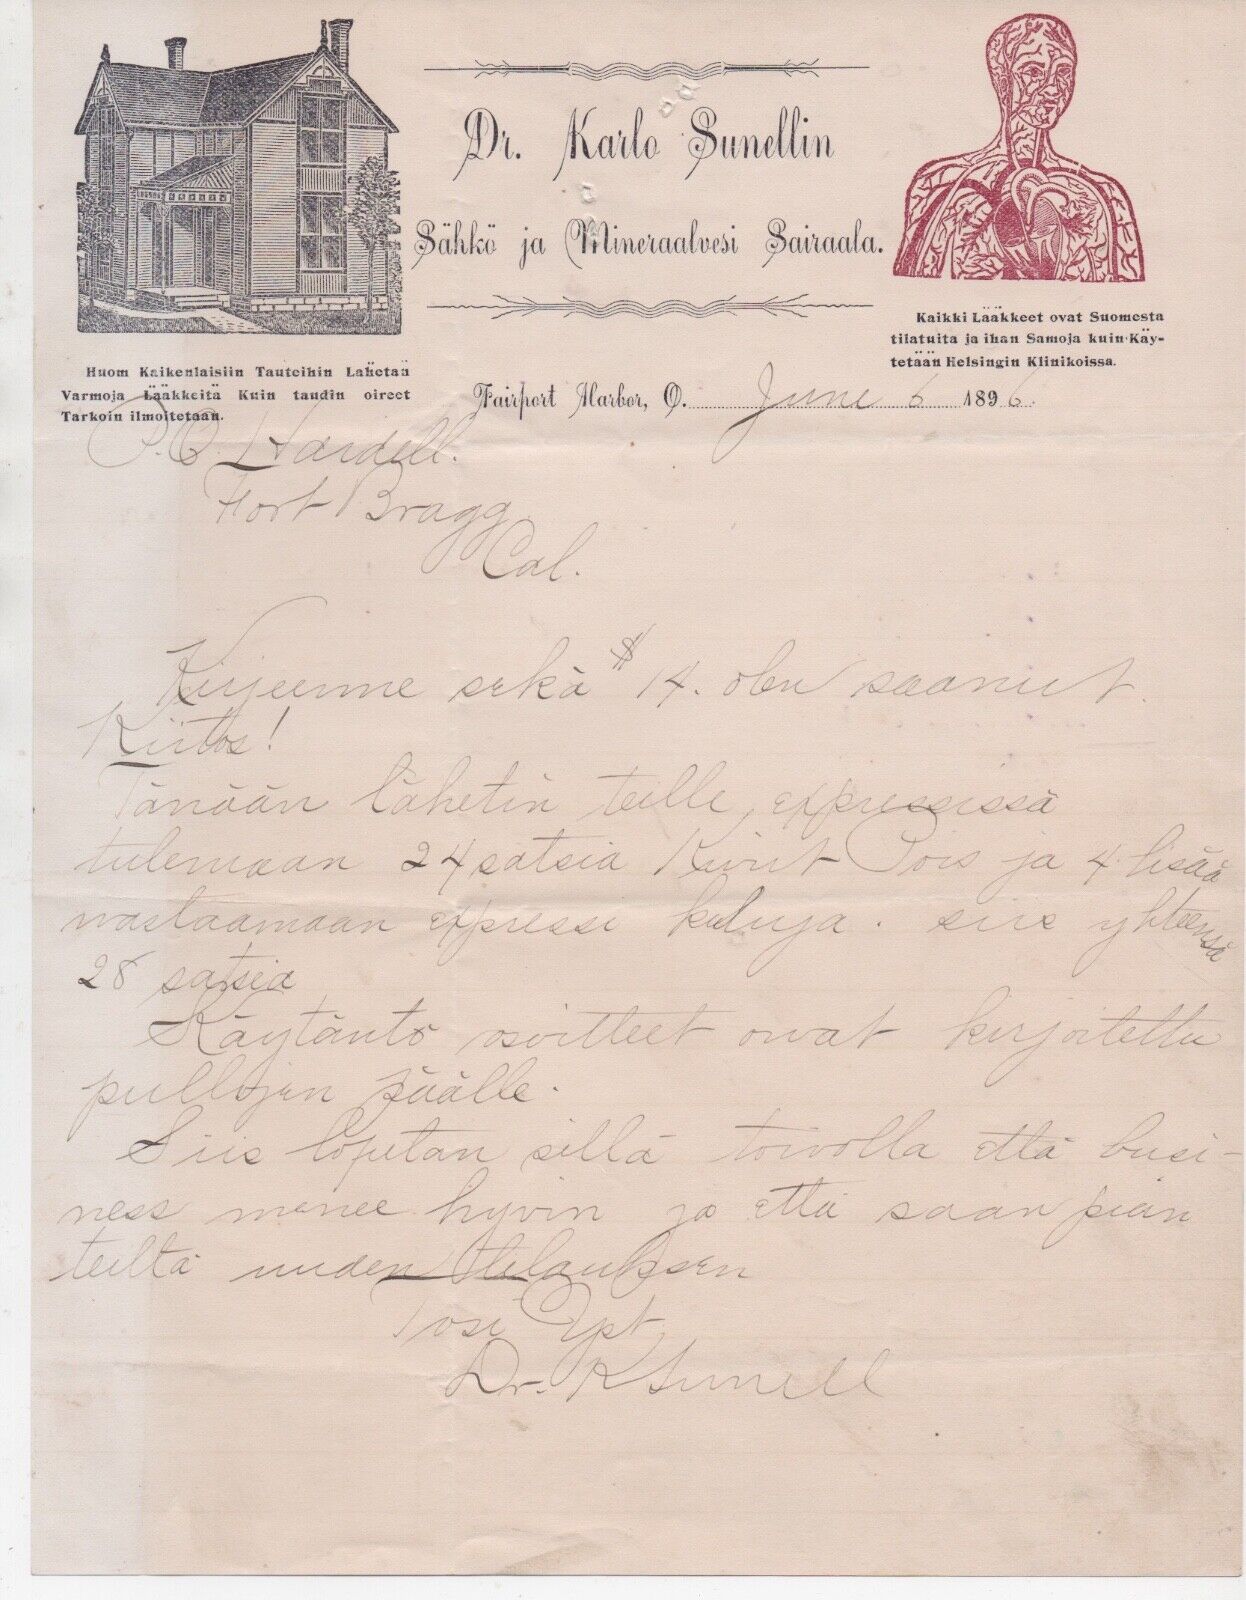 Dr. Karlo Sunellin
Sähkö ja Mineraalvesi Sairaala.
Kaikki Lääkkeet ovat Suomesta
tilatuita ja ihan Samoja kuin Käy-
tetään Helsingin Klinikoissa.
Huom Kaikenlaisiin Tauteihin Lahetaä
Varmoja Lääkkeitä Kuin taudin oireet
Tarkoin ilmoitetaan.
Fairport Harbor, O. June 6 1896.
P.O. Hardell.
Fort Bragg
Cal.
Kirjeenne sekä $14. olen saanut.
Kiitos!
Tänään lähetin teille expressissä
tulemaan 24 satsia Kivut Pois ja 4 lisää
wastaamaan expressi kuluja. siis yhteensä
28 satsia
Käytäntö osvitteet owat kirjoitettu
pullojen päälle.
Siis lopetan sillä toivolla että busi-
ness menee hyvin ja että saan pian
teiltä uuden tilauksen
Tosi Yst.
Dr. K Sunell